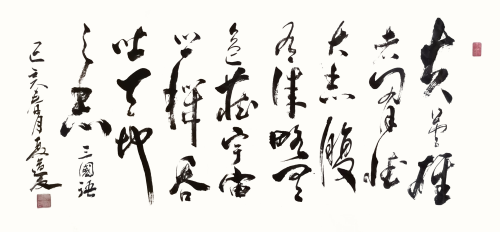 夫英雄
者胸懷
大志腹
有謀略
包藏宇宙
之機吞
吐天地
之志
三國語
己亥月